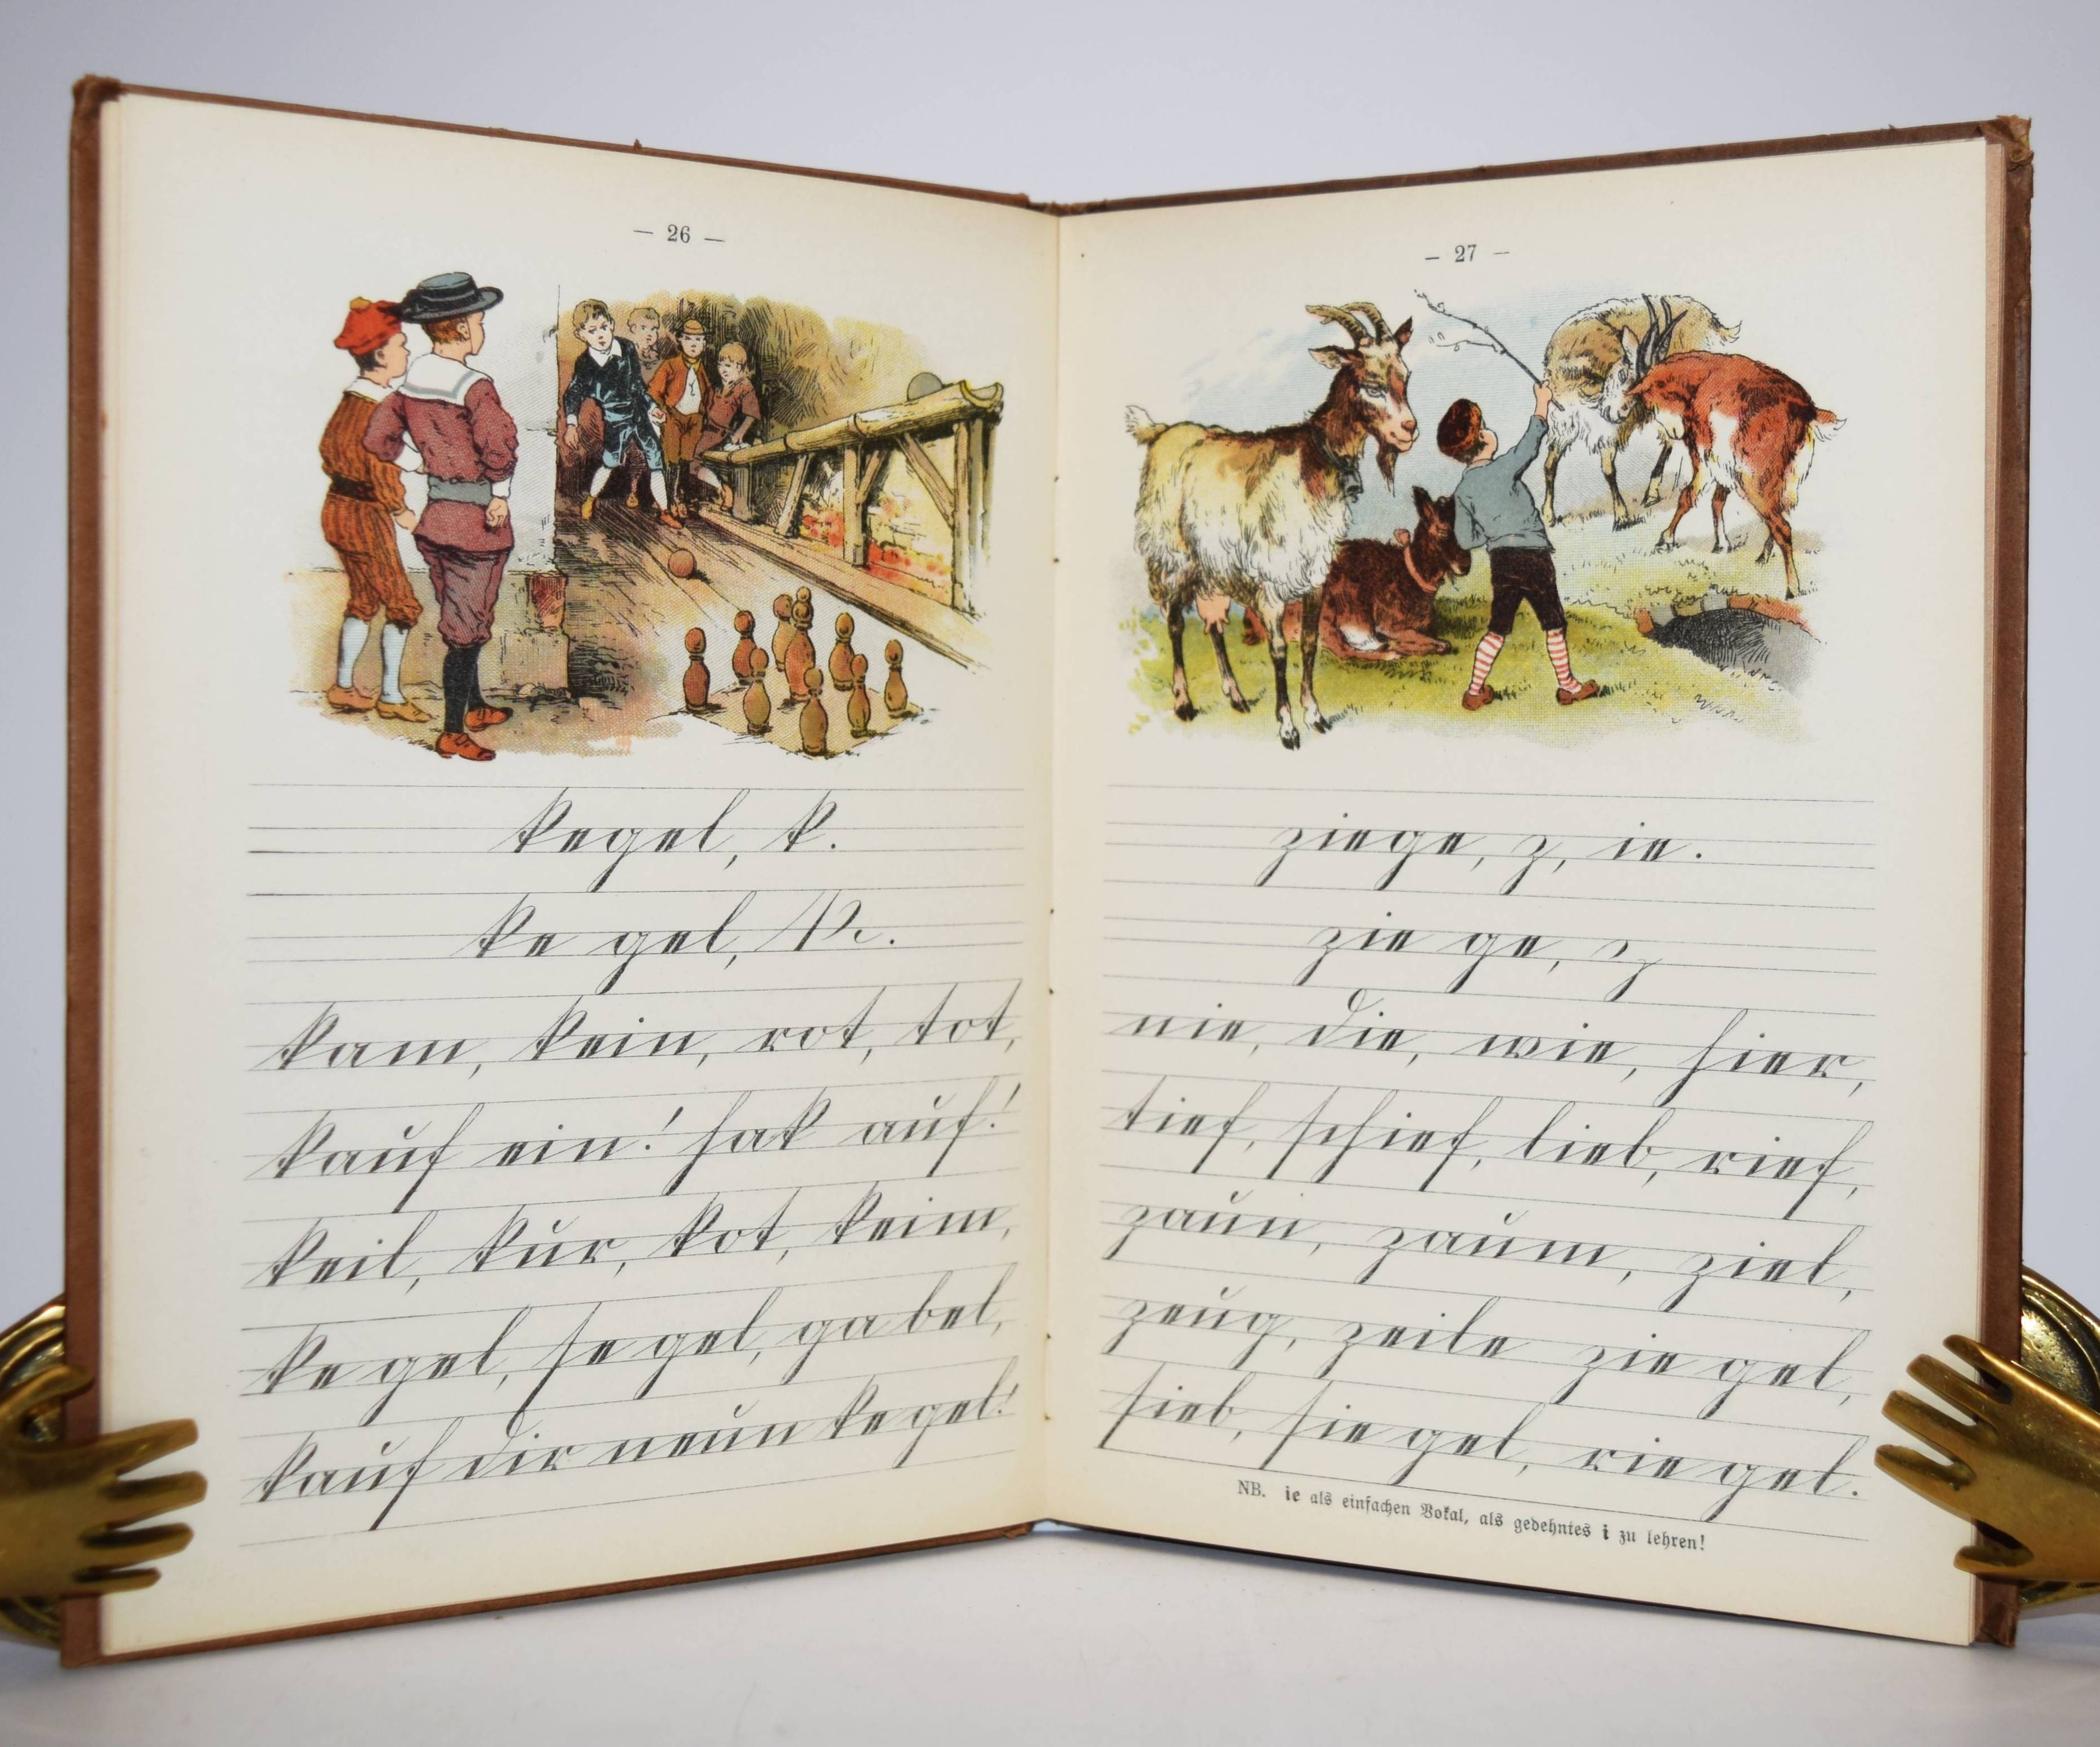 — 26 —
kegel, k.
ke gel, k.
kam, kein, rot, tot,
kauf ein! hak auf!
keil, kur, kot, keim,
ke gel, se gel, ga bel,
kauf dir neun ke gel!
— 27 —
ziege, z, ie.
zie ge, z
nie, die, wie, hier,
tief, schief, lieb, rief,
zaun, zaum, ziel,
zeug, zeile zie gel,
sieb, sie gel, rie gel.
NB. ie als einfachen Vokal, als gedehntes i zu lehren!